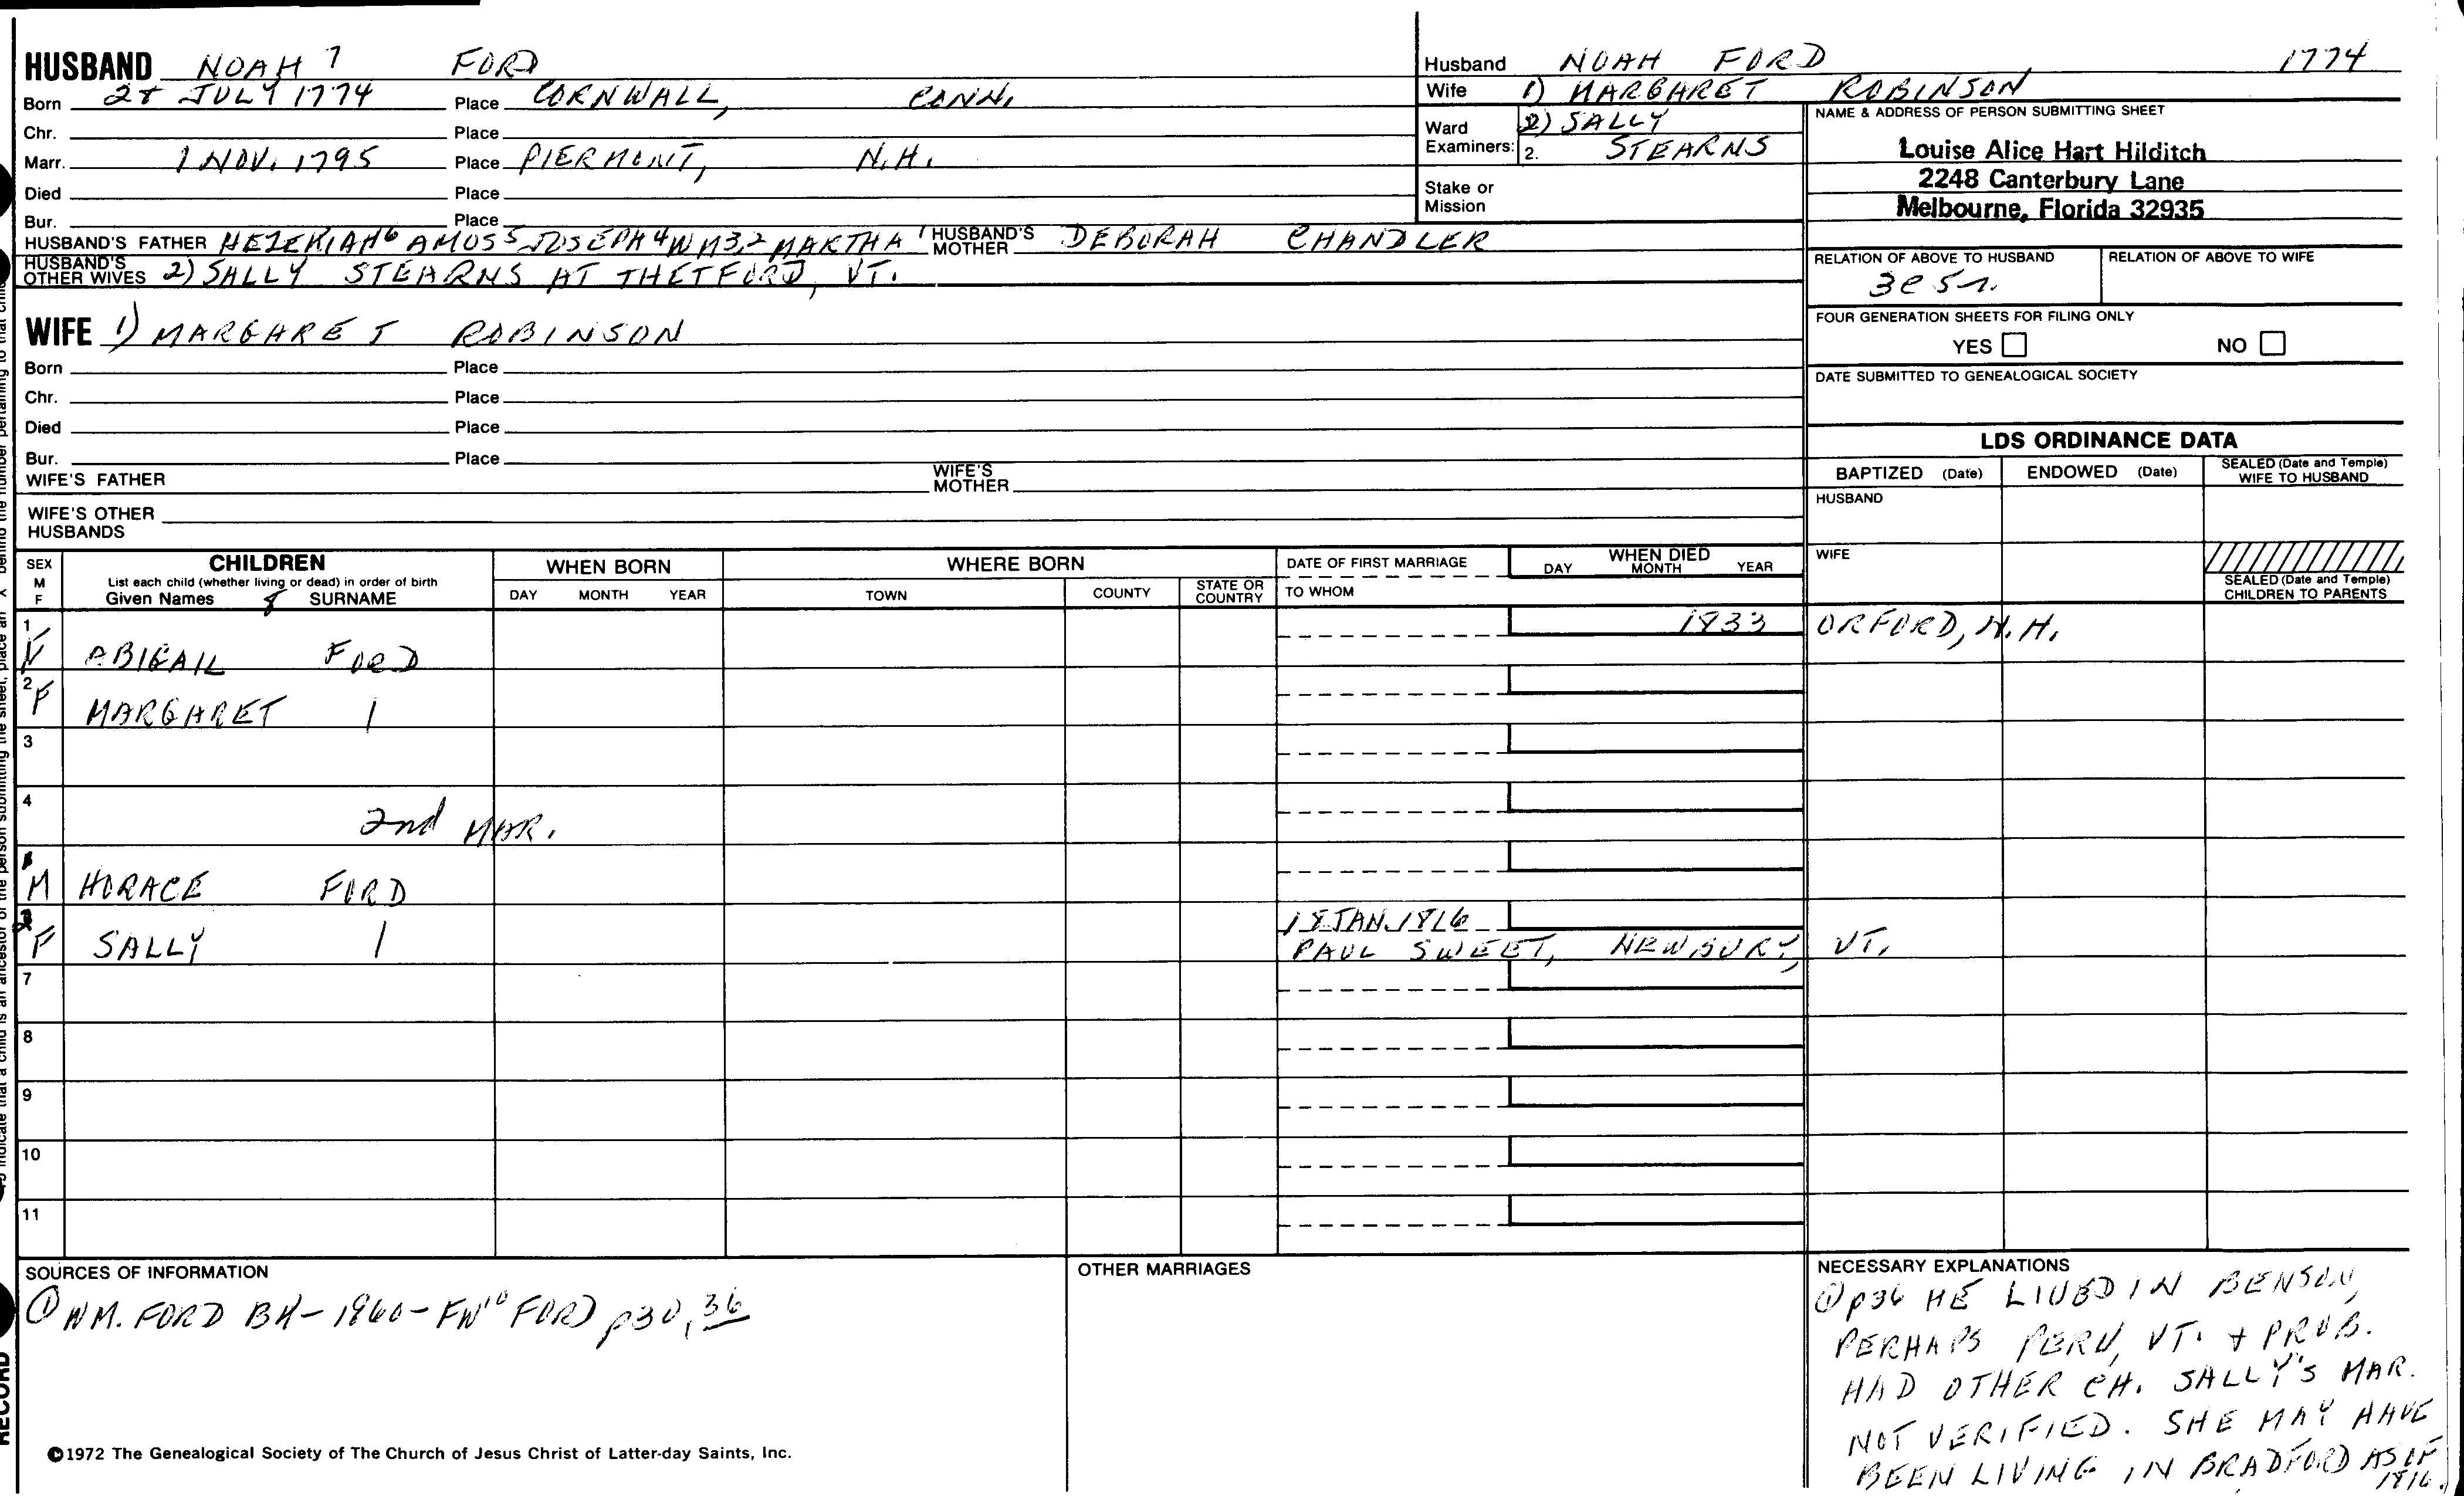 HUSBAND NOAH 7 FORD
Born 28 JULY 1774 Place CORNWALL, CONN.
Chr. Place
Marr. 1 NOV. 1795 Place PIERMONT, N.H.
Died Place
Bur. Place
HUSBAND'S FATHER HEZEKIAH6 AMOS5 JOSEPH4 WM3,2 MARTHA1 HUSBAND'S MOTHER DEBORAH CHANDLER
HUSBAND'S OTHER WIVES 2) SALLY STEARNS AT THETFORD, VT.
WIFE 1) MARGARET ROBINSON
Born Place
Chr. Place
Died Place
Bur. Place
WIFE'S FATHER WIFE'S MOTHER
WIFE'S OTHER HUSBANDS
Husband NOAH FORD 1774
Wife 1) MARGARET ROBINSON
Ward Examiners: 2) SALLY
2. STEARNS
Stake or Mission
NAME & ADDRESS OF PERSON SUBMITTING SHEET
Louise Alice Hart Hilditch
2248 Canterbury Lane
Melbourne, Florida 32935
RELATION OF ABOVE TO HUSBAND RELATION OF ABOVE TO WIFE
3C 5r.
FOUR GENERATION SHEETS FOR FILING ONLY
YES NO
DATE SUBMITTED TO GENEALOGICAL SOCIETY
LDS ORDINANCE DATA
BAPTIZED (Date) ENDOWED (Date) SEALED (Date and Temple) WIFE TO HUSBAND
HUSBAND
WIFE
SEALED (Date and Temple) CHILDREN TO PARENTS
SEX M F
CHILDREN
List each child (whether living or dead) in order of birth
Given Names 8 SURNAME
WHEN BORN
DAY MONTH YEAR
WHERE BORN
TOWN COUNTY STATE OR COUNTRY
DATE OF FIRST MARRIAGE
TO WHOM
WHEN DIED
DAY MONTH YEAR
1 1833 ORFORD, N.H.
ABIGAIL FORD
2
F MARGARET |
3
4
2nd MAR.
1
M HORACE FORD
2 18 JAN. 1816
F SALLY | PAUL SWEET, NEWBURY, VT.
7
8
9
10
11
SOURCES OF INFORMATION
① WM. FORD BK-1960-EW10 FORD p30, 36
OTHER MARRIAGES
NECESSARY EXPLANATIONS
① p36 HE LIVED IN BENSON,
PERHAPS PERU, VT. + PROB.
HAD OTHER CH. SALLY'S MAR.
NOT VERIFIED. SHE MAY HAVE
BEEN LIVING IN BRADFORD AS OF
1816.
©1972 The Genealogical Society of The Church of Jesus Christ of Latter-day Saints, Inc.
RECORD